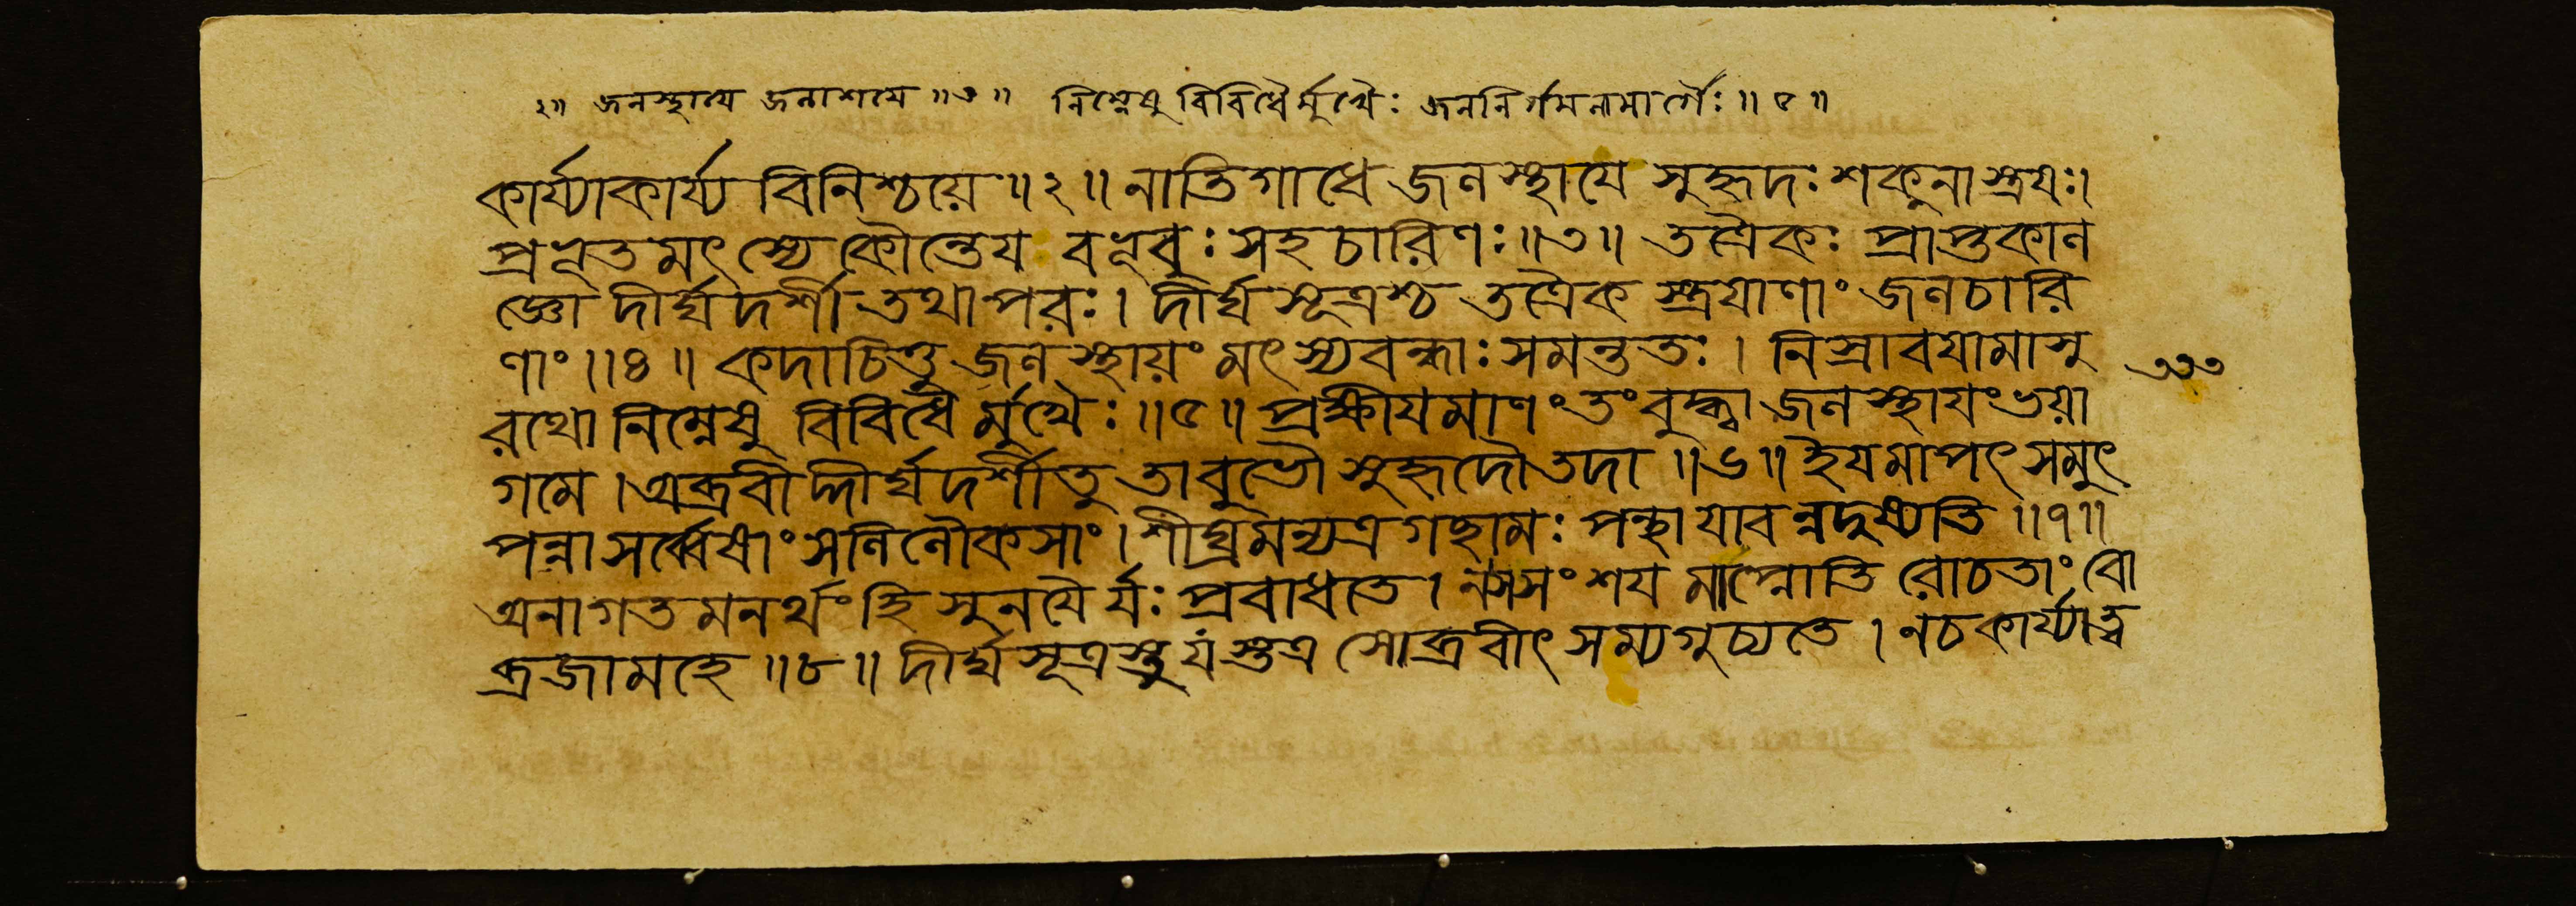 ২॥ জলস্থায়ে জলাশয়ে ॥৩॥ নিম্নেষু বিবিধৈর্মুখৈঃ জলনির্গমনমার্গৈঃ॥৫॥
কার্য্যাকার্য্য বিনিশ্চয়ে॥২॥নাতিগাধে জলস্থায়ে সুহৃদঃ শকুনাস্ত্রয়ঃ।
প্রভূতমৎস্যে কৌন্তেয় বভূবুঃ সহচারিণঃ॥৩॥ তত্রৈকঃ প্রাপ্তকাল
জ্ঞো দীর্ঘদর্শী তথাপরঃ। দীর্ঘসূত্রশ্চ তত্রৈক স্ত্রয়াণাং জলচারি
ণাং॥৪॥ কদাচিত্তু জলস্থায়ং মৎস্যবন্ধাঃ সমন্ততঃ। নিস্রাবয়ামাসু
রথো নিম্নেষু বিবিধৈর্মুখৈঃ॥৫॥ প্রক্ষীয়মাণং তং বুদ্ধ্বা জলস্থায়ং ভয়া
গমে। অব্রবীদ্দীর্ঘদর্শী তু তাবুভৌ সুহৃদৌ তদা॥৬॥ ইয়মাপৎ সমুৎ
পন্না সর্ব্বেষাং সলিলৌকসাং। শীঘ্রমন্যত্র গছামঃ পন্থা যাবন্নদুষ্যতি॥৭॥
অনাগতমনর্থং হি সুনয়ৈর্যঃ প্রবাধতে। নসসংশয় মাপ্নোতি রোচতাং বো
ব্রজামহে॥৮॥ দীর্ঘসূত্রস্তু যস্তত্র সোব্রবীৎ সম্যগুচ্যতে। নচকার্য্যাত্ব
৩৩৩